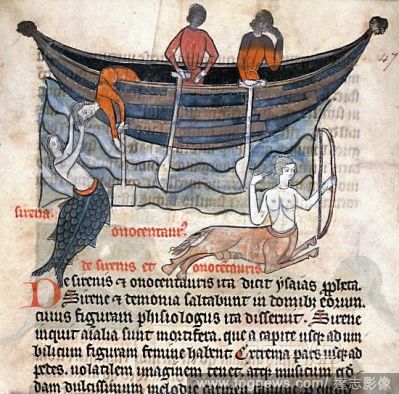 47
sirena.
onocentaur?
de sirenis et onocentauris
De sirenis & onocentauris ita dicit ysaias ppheta.
Sirene & demonia saltabunt in domibz eorum,
cuius figuram physiologus ita disseruit. Sirene
inquit aialia sunt mortifera. que a capite usqz ad um
bilicum figuram femine habent. Extrema pars usqz ad
pedes. uolatilem imaginem tenet. atqz musicum
dam dulcissimum melodie carmen
www.fpgnews.com/ 達志影像